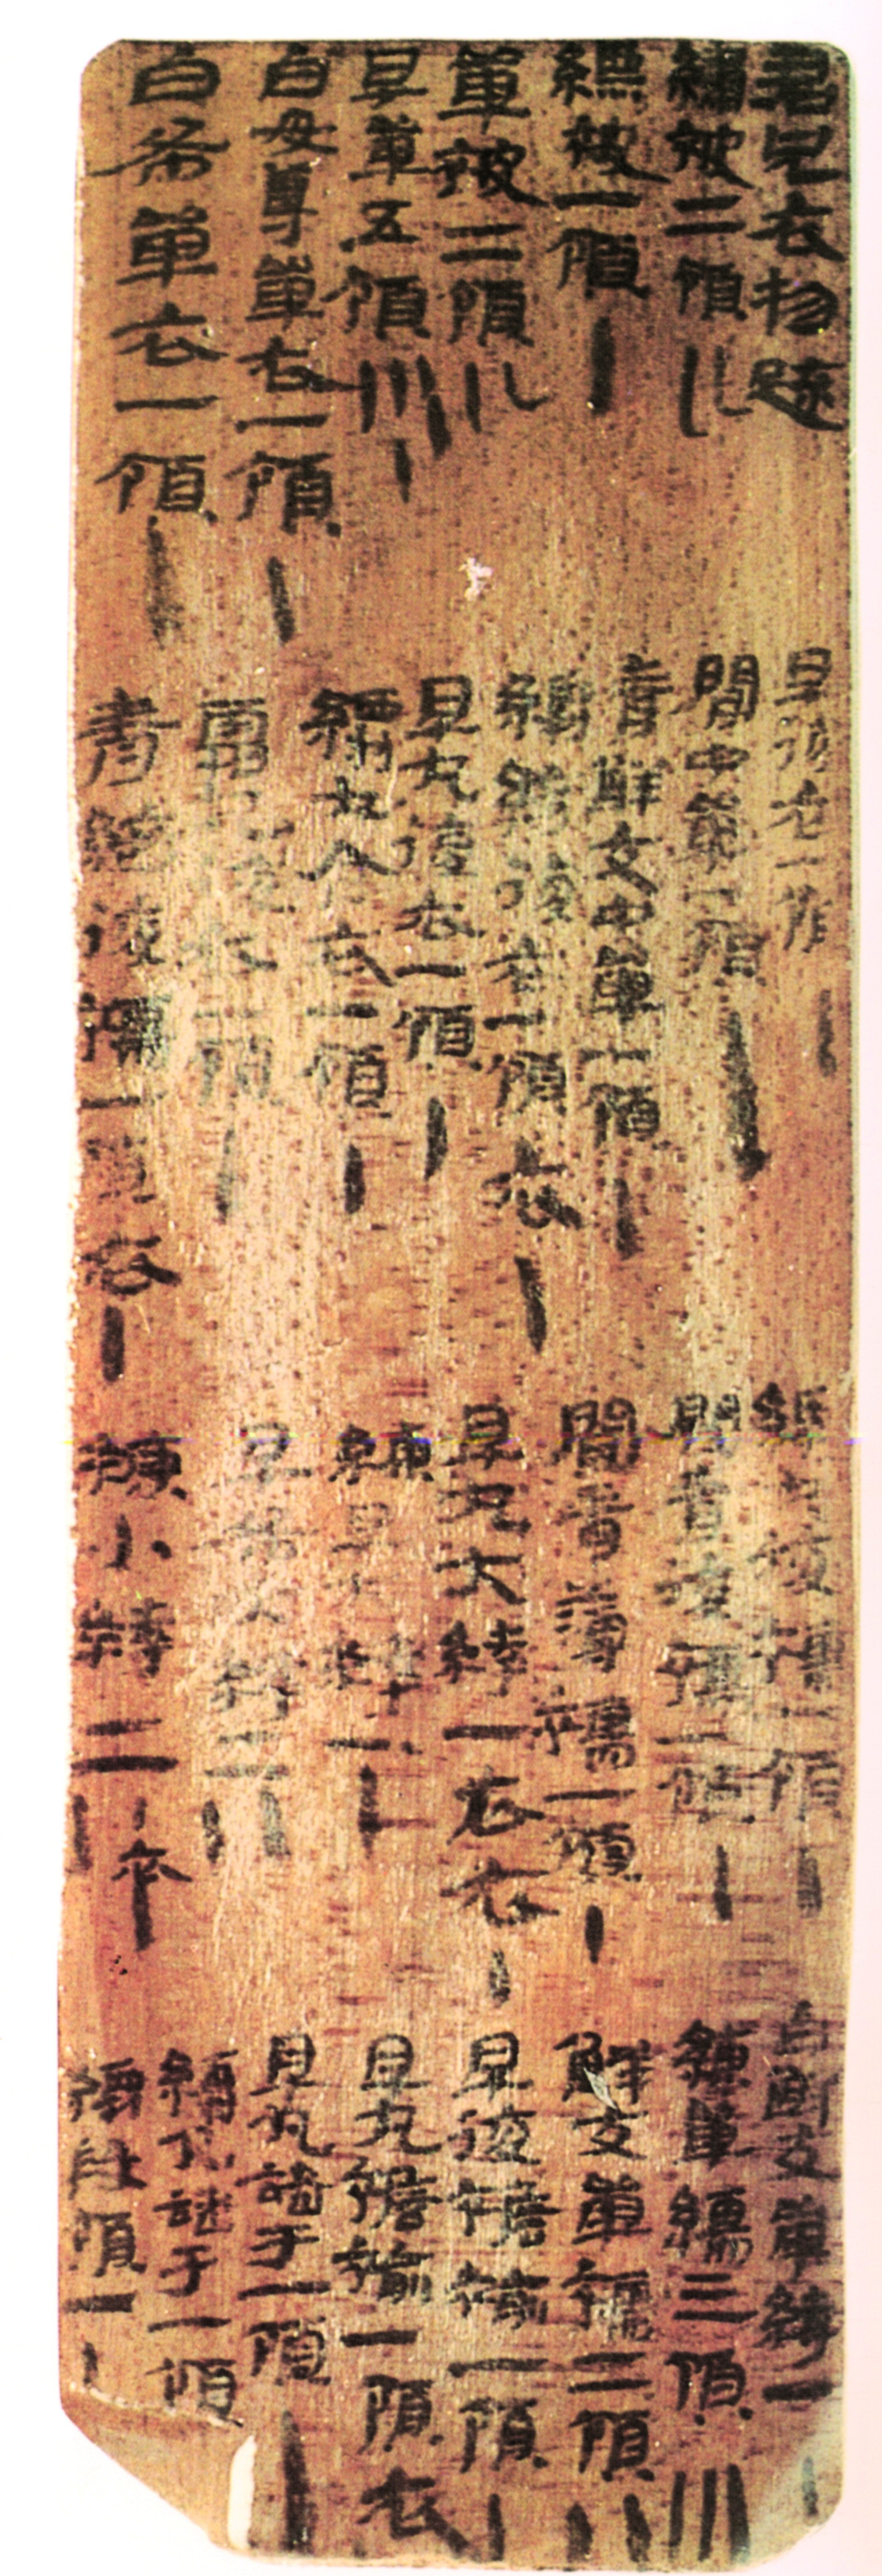 君兄衣物疏
繡被二領
縹被一領
單被二領
早單五領
白毋尊單衣一領
白布單衣一領
早復衣一襲
閒中單一領
青鮮支中單一領
縹綺復衣一領 衣
早丸復衣一領
縹丸合衣一領
霜丸復衣一領
青綺復襦一領 衣
復襦一領
閒青復襦一領
閒青薄襦一領
早丸大絝一衣衣
練早大絝一
早布大絝二
練小絝二 卒
白鮮支單絝一
練單襦三領
鮮支單襦二領
早復襜褕一領
早丸襜褕一領 衣
早丸諸于一領
縹丸諸于一領
領一